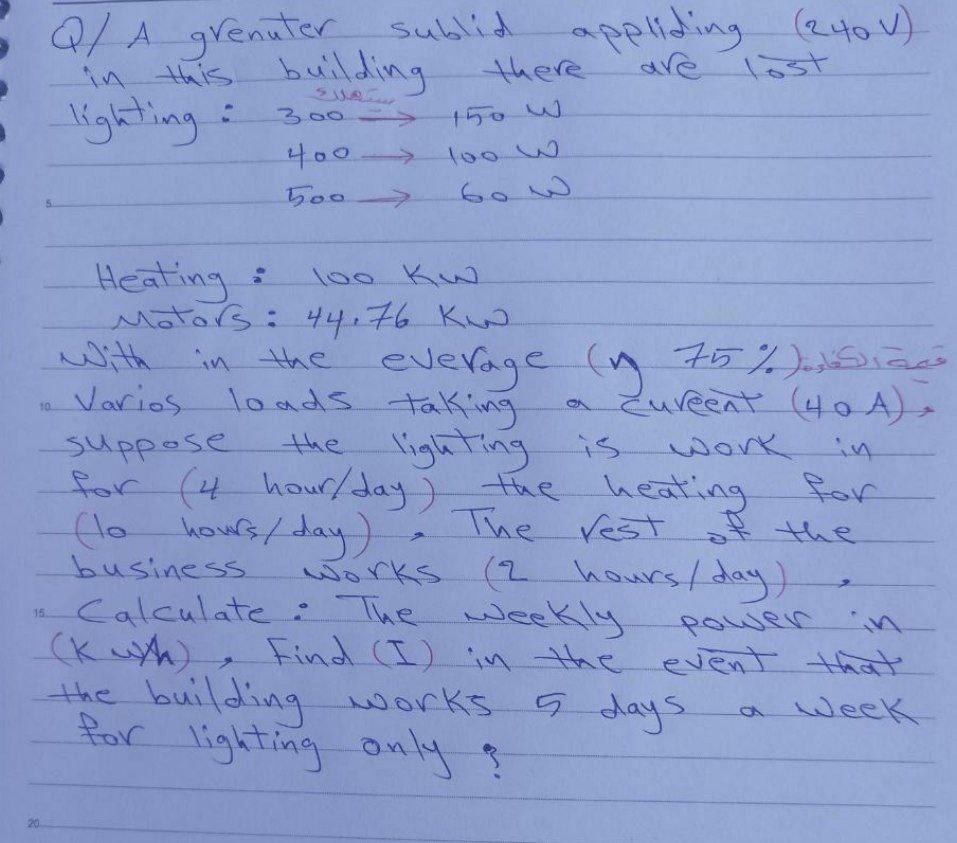 Q/ A grenuter sublid appliding (240V)
in this building there are lost
lighting : 300 → 150 W
400 → 100 W
500 → 60 W
5
Heating : 100 KW
Motors : 44.76 KW
With in the everage (η 75%)
10 Varios loads taking a cureent (40 A),
suppose the lighting is work in
for (4 hour/day) the heating for
(10 hours/day), The rest of the
business works (2 hours/day),
15 Calculate : The weekly power in
(Kwh), Find (I) in the event that
the building works 5 days a week
for lighting only ?
20